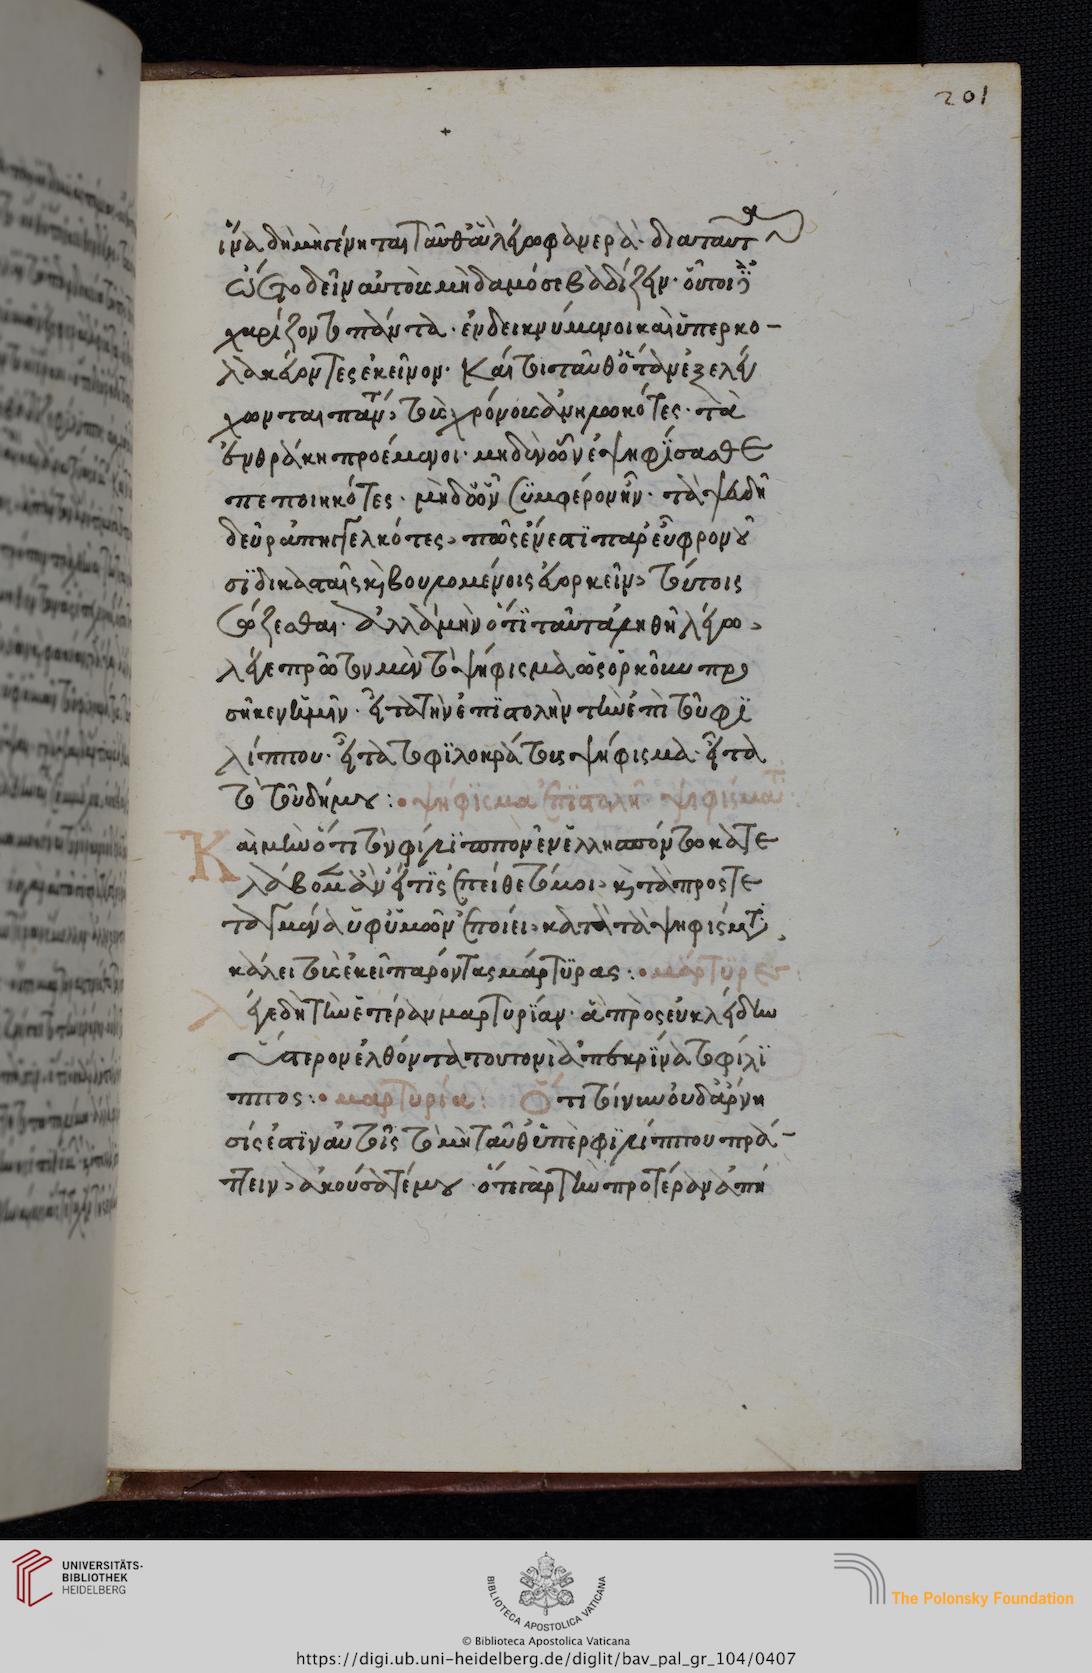 201
ἵνα δὴ μὴ γένηται ταῦθ' ἃ λέγω φανερά· διὰ ταῦτ'
ᾤοντο δεῖν αὐτοὺς μηδαμόσε βαδίζειν· οὗτοι
χαριζόμενοι πάντα· ἐνδεικνύμενοι καὶ ὑπερκο-
λακεύοντες ἐκεῖνον· καίτοι ταῦθ' ὅταν ἐξελέγ
χωνται πάντα, τοὺς χρόνους ἀνηλωκότες· τὰ
ἐν Θράκῃ προέμενοι· μηδὲν ὧν ἐψηφίσασθε
πεποιηκότες· μηδ' ὧν συμφέρον ἦν· τὰ ψευδῆ
δεῦρ' ἀπηγγελκότες, πῶς ἔνεστι παρ' εὖ φρονοῦ
σι δικασταῖς κ βουλομένοις εὐορκεῖν, τούτοις
σώζεσθαι· ἀλλὰ μὴν ὅτι ταῦτ' ἀληθῆ λέγω,
λέγε πρῶτον μὲν τὸ ψήφισμα ὡς ὁρκοῦν προ
σῆκεν ὑμῖν· εἶτα τὴν ἐπιστολὴν τὴν ἐπὶ τοῦ Φι
λίππου· εἶτα τὸ Φιλοκράτους ψήφισμα· εἶτα
τὸ τοῦ δήμου :• ψήφισμα ἐπιστολὴ ψηφίσματα
Καὶ μὴν ὅτι τὸν Φίλιππον ἐν Ἑλλησπόντῳ κατε
λάβομεν ἂν εἴ τις ἐπείθετό μοι, κ τὰ προστε
ταγμένα ὑφ' ὑμῶν ἐποίει κατὰ τὰ ψηφίσματα,
κάλει τοὺς ἐκεῖ παρόντας μάρτυρας :• μάρτυρες
λέγε δὴ τὴν ἑτέραν μαρτυρίαν· ἃ πρὸς Εὐκλείδην
ὕστερον ἐλθόντα τουτονὶ ἀπεκρίνατο Φίλι
ππος :• μαρτυρία : Ὅτι τοίνυν οὐδ' ἄρνη
σίς ἐστιν αὐτοῖς τὸ μὴ ταῦθ' ὑπὲρ Φιλίππου πρά-
ττειν, ἀκούσατέ μου· ὅτε γὰρ τὴν προτέραν ἀπῄ
UNIVERSITÄTS-
BIBLIOTHEK
HEIDELBERG
BIBLIOTECA APOSTOLICA VATICANA
The Polonsky Foundation
© Biblioteca Apostolica Vaticana
https://digi.ub.uni-heidelberg.de/diglit/bav_pal_gr_104/0407